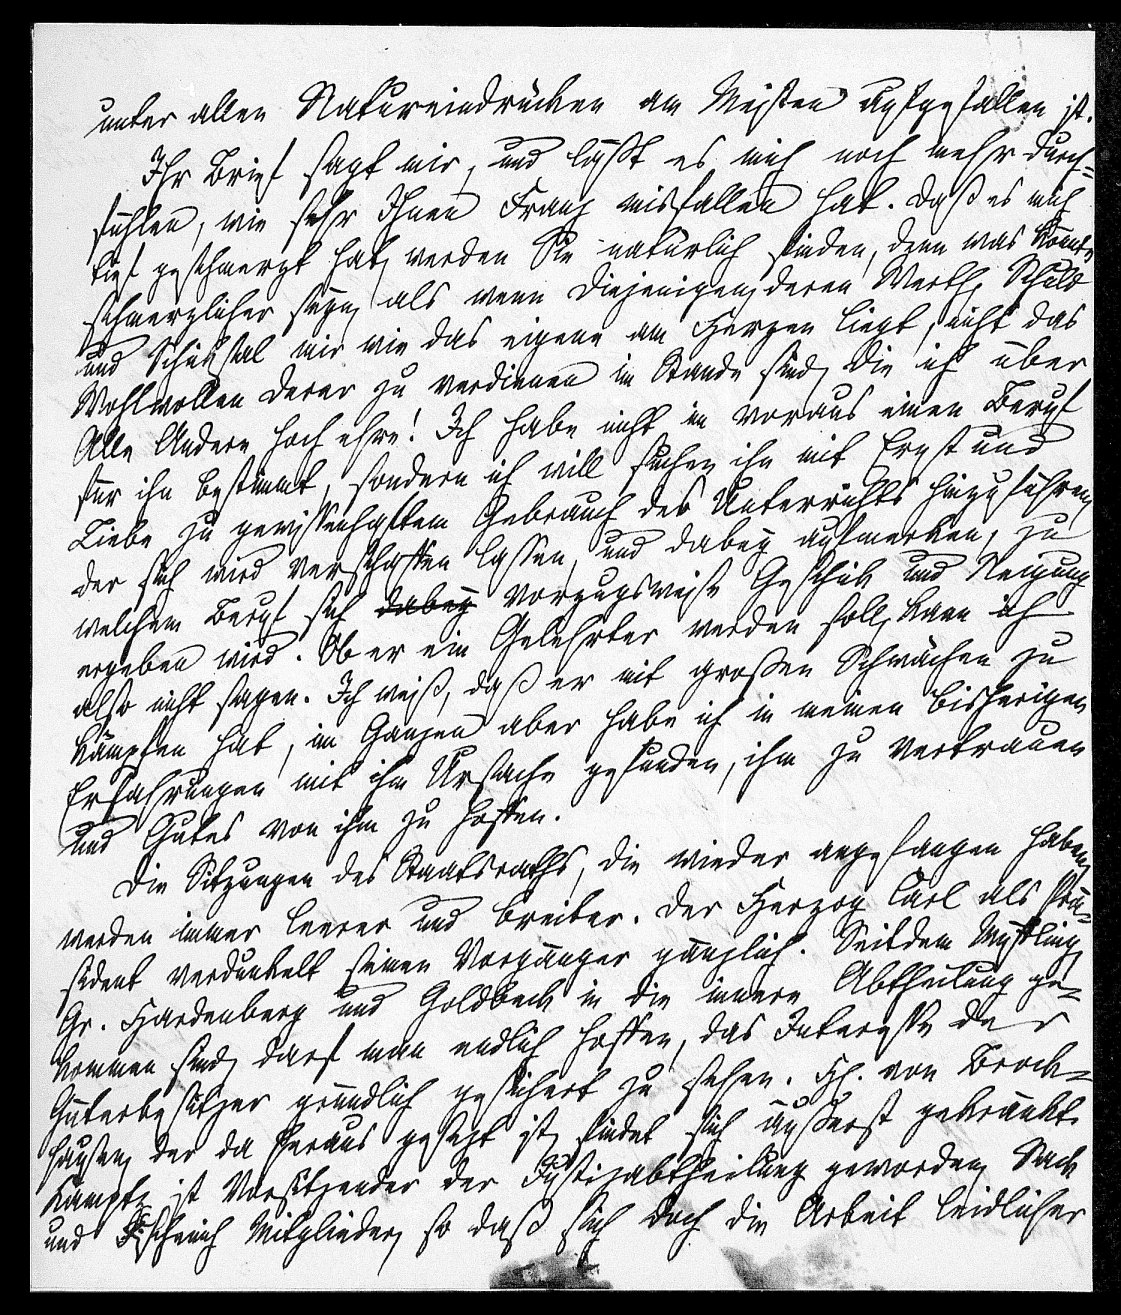 unter allen Natureindrücken am Meisten aufgefallen ist.
Ihr Brief sagt mir, und läßt es mich noch mehr durch-
fühlen, wie sehr Ihnen Franz misfallen hat. Daß es mich
tief geschmerzt hat, werden Sie natürlich finden, denn was könnte
schmerzlicher seyn, als wenn diejenigen, deren Werth, Schuld
und Schicksal mir wie das eigene am Herzen liegt, nicht das
Wohlwollen derer zu verdienen im Stande sind, die ich über
Alle Andere hoch ehre! Ich habe nicht im voraus einen Beruf
für ihn bestimmt, sondern ich will suchen ihn mit Ernst und
Liebe zu gewissenhaftem Gebrauch des Unterrichts hinzuführen,
der sich wird verschaffen lassen, und dabey aufmerken, zu
welchem Beruf sich dabey vorzugsweise Geschick und Neigung
ergeben wird. Ob er ein Gelehrter werden soll, kann ich
also nicht sagen. Ich weiß, daß er mit großen Schwächen zu
kämpfen hat, im Ganzen aber habe ich in meinen bisherigen
Erfahrungen mit ihm Ursache gefunden, ihm zu vertrauen
und Gutes von ihm zu hoffen.
Die Sitzungen des Staatsraths, die wieder angefangen haben,
werden immer leerer und breiter. Der Herzog Carl als Prä-
sident verdunkelt seinen Vorgänger gänzlich. Seitdem Müffling,
Gr. Hardenberg und Goldbeck in die innere Abtheilung ge-
kommen sind, darf man endlich hoffen, das Interesse der
Güterbesitzer gründlich gesichert zu sehen. H. von Brock-
hausen, der da heraus gesezt ist, findet sich äußerst gekränkt.
Kamptz ist Vorsitzender der Justizabtheilung geworden, Sack
und Eichhorn Mitglieder, so daß sich doch die Arbeit leidlicher